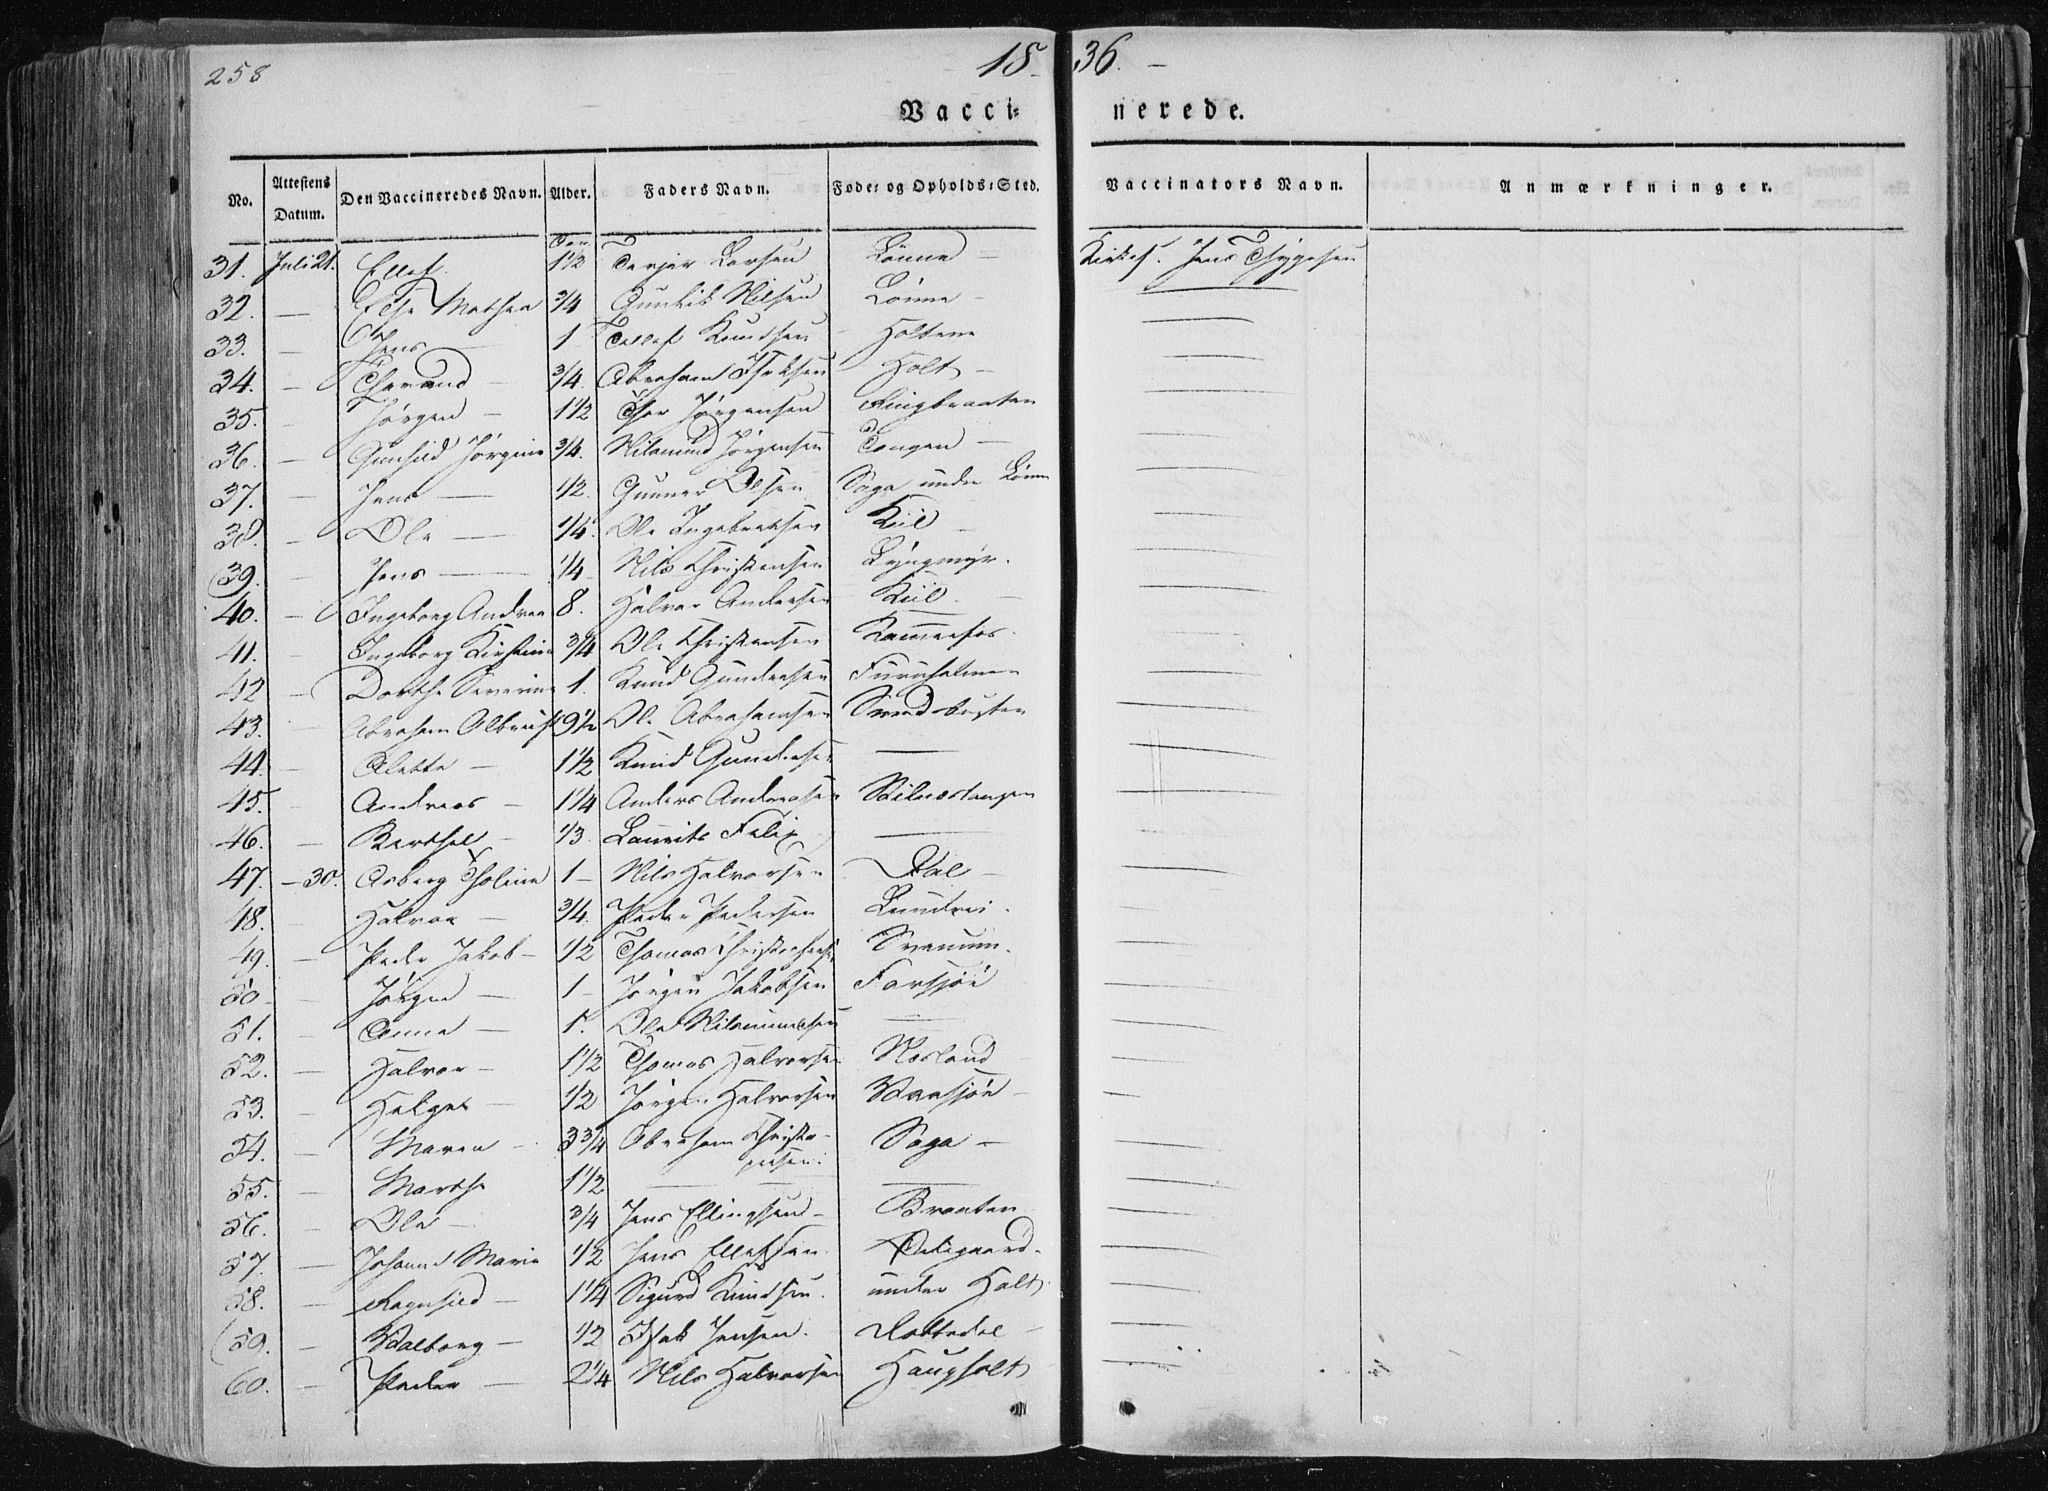 258
18 36.
Vacci= nerede.
No. Attestens Datum. Den Vaccineredes Navn. Alder. Faders Navn. Føde= og Opholds=Sted. Vaccinators Navn. Anmærkninger.
31. Juli 21. Ellef 1 1/2 Terjer Larsen Lönne — Kirkes. Jens Thygesen
32. — Else Mathea 3/4 Gunleik Nilsen Lönne —
33. — Jens 1 Tellef Knudsen Holtene
34. — Thorand — 3/4. Abraham Isaksen Holt —
35. — Jörgen — 1 1/2 Thor Jörgensen Ringbraaten
36. — Gunhild Jörgine 3/4. Nilsmund Jörgensen Tangen —
37. — Jens — 1/2. Gunner Olsen Saga under Lönne
38. — Ole — 1/4. Ole Ingebretsen Kiil —
39. — Jens — 1/4 Nils Christensen Lÿngmÿr.
40. — Ingeborg Andrea 8. Halvor Andersen Kiil. —
41. — Ingeborg Kirstine 3/4 Ole Christensen Kammerfos.
42 — Dorthe Severine 1. Knud Gundersen Furuholmen
43. — Abraham Albregt 9 1/2 Ole Abrahamsen Sandsbugten
44. — Alette — 1 1/2 Knud Gundersen —
45. — Andreas — 1 1/4 Anders Andersen
46. — Berthel — 1/3. Laurits Felix —
47. — 30. Asberg Tholine 1 — Nils Halvorsen Dal —
48. — Halvor — 3/4. Peder Pedersen Lundrei.
49. — Peder Jakob — 1/2 Thomas Christophersen Svenum.
50 — Jörgen — 1 — Jörgen Jakobsen Farsjöe
51. — Anne — 1. Ole Nilsmundsen —
52. — Halvor — 1 1/2 Thomas Halvorsen Næsland
53. — Helge — 1/2 Jörgen Halvorsen Vaasjöe —
54. — Maren — 3 3/4 Abraham Christo-
phersen. Saga —
55. — Marthe 1 1/2 — — —
56. — Ole — 3/4 Jens Ellingsen — Braaten
57. — Johanne Marie 1/2 Jens Ellefsen. Ödegaard.
58. — Ragnhild — 1 1/4 Sigurd Knudsen. under Holt
59. — Valborg — 1/2 Isak Jensen. Rottedal —
60. — Peder — 2 1/4 Nils Halvorsen Haugholt